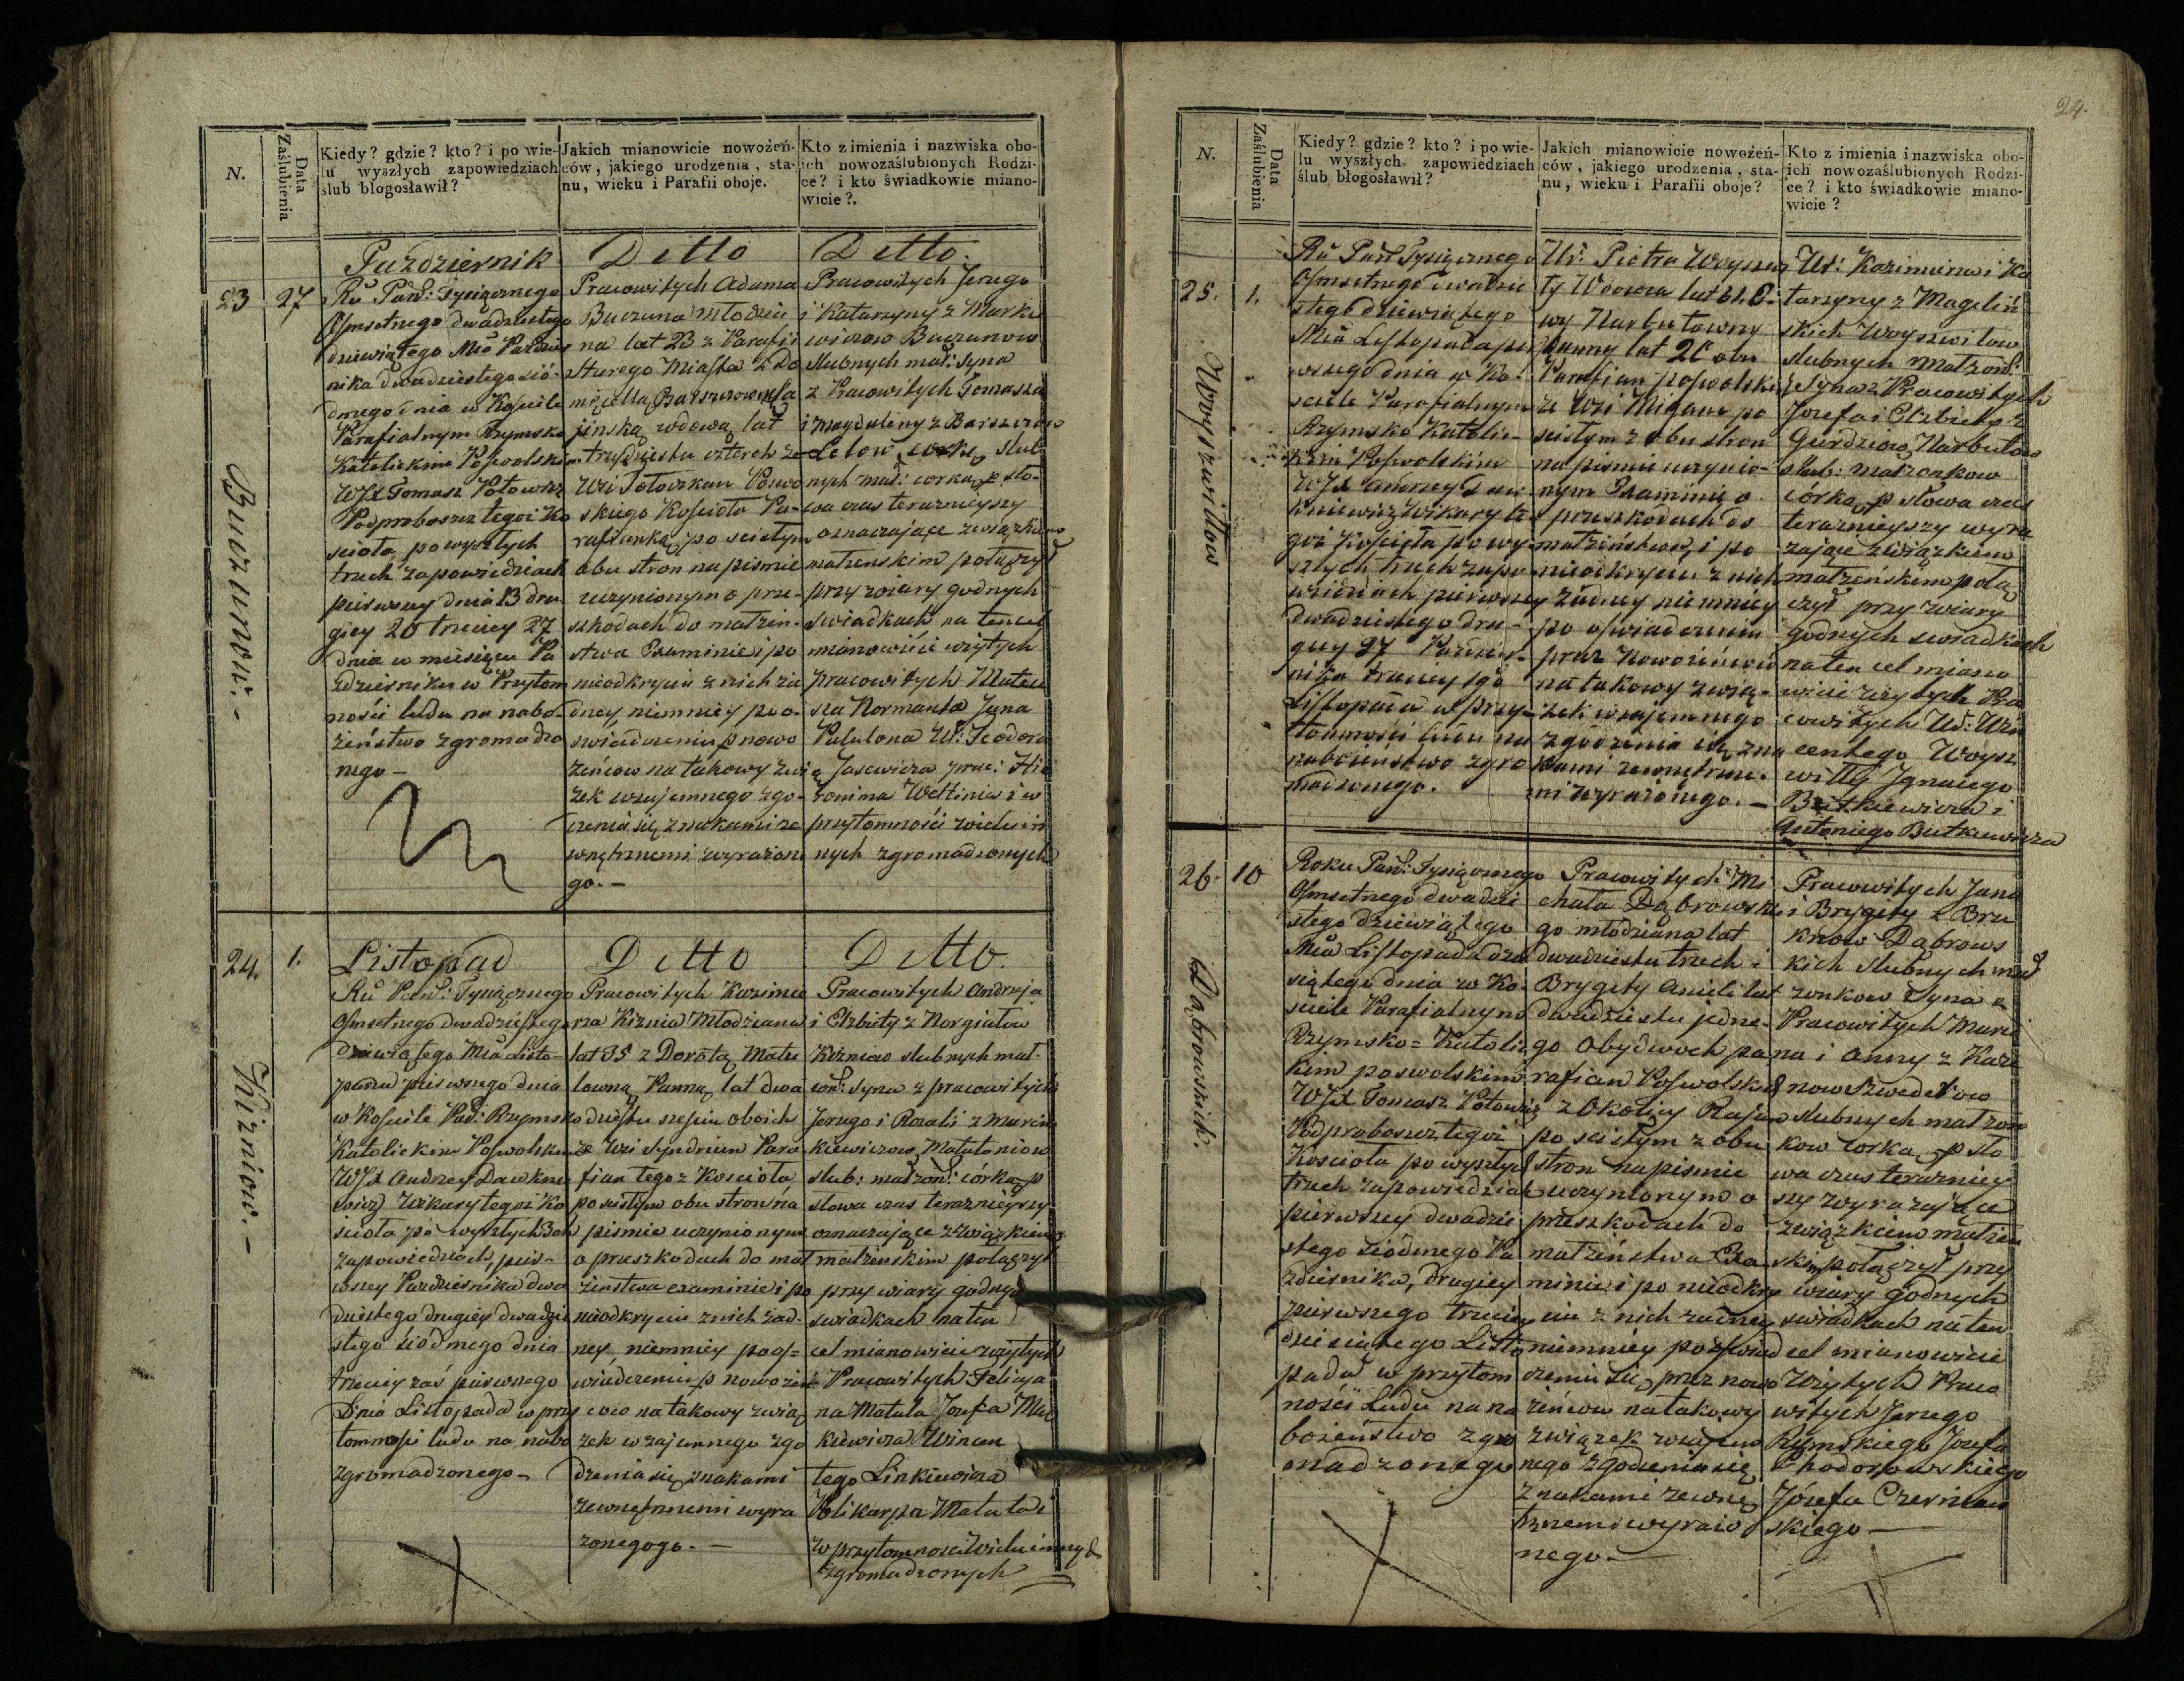 N.
Data
Zaślubienia
Kiedy? gdzie? kto? i po wie-
lu wyszłych zapowiedziach
ślub błogosławił?
Jakich mianowicie nowożeń-
ców, jakiego urodzenia, sta-
nu, wieku i Parafii oboje.
Kto z imienia i nazwiska obo-
ich nowozaślubionych Rodzi-
ce? i kto świadkowie miano-
wicie?.
23
27
Buczunow.-
Pazdziernik
Ru Pań: Tysiącznego
Osmsetnego dwadziestego
dziewiątego Mca Pazdzier
nika dwadziestego siò-
dmego dnia w Kosciele
Parafialnym Rzymsko
Katolickim Poswolskim
WJX Tomasz Potowicz
Podproboszcz tegoż Ko
scioła, po wyszłych
trzech zapowiedziach
pierwszey dnia 13 dru
giey 20 trzeciey 27
dnia w miesiącu Pa
zdzierniku w Przytom
ności ludu na nabo-
żeństwo zgromadzo
nego -
Ditto
Pracowitych Adama
Buczuna młodzia
na lat 23 z Parafii
starego Miasta z Do
jinską wdową lat
trzydziestu czterech ze
Wsi Poswo
skiego Kościoła Pa-
rafianką, po scisłym
obu stron na pismie
uczynionym o prze-
szkodach do małżeń-
stwa Examinie i po
nieodkryciu z nich ża
dney, niemniey po o-
swiadczeniu p nowo
żeńcow na takowy zwią
zek wzajemnego zgo-
dzenia się znakami ze
wnętrznemi wyrażone
go. -
Ditto.
Pracowitych Jerzego
i Katarzyny z Marke
wiczow Buczunow
slubnych mał: syna
z Pracowitych Tomasza
i Magdaleny z Barszczow
slub
nych mał: corką, p sło-
wa czas terazniejszy
oznaczające związkiem
małżenskim połączył
przy wiary godnych
swiadkach na ten cel
mianowicie wziętych
pracowitych Mateu
sza Normanta Jana
Ur: Teodora
Jasewicza prac: Hie
ronima i w
przytomności wielu in
nych zgromadzonych
24.
1.
Kiżniow. -
Listopad
Ru Pań: Tysiącznego
Osmsetnego dwadziestego
dziewiątego Mca Listo-
pada pierwszego dnia
w Kosciele Par: Rzymsko
Katolickim Poswolskim
WJX Andrzey Dawkni
ewicz Wikary tegoż Ko
scioła po wyszłych 3ch
zapowiedziach, pier-
wszey Pazdziernika dwa
dziestego drugiey dwadzie
stego siodmego dnia
trzeciey zaś pierwszego
Dnia Listopada w przy
tomności ludu na nabo
zgromadzonego -
Ditto
Pracowitych Kazimie
rza Kiznia Młodziana
lat 35 z Dorotą Matu
lowną Panną lat dwa
dziestu szesciu oboich
ze Wsi Syndrium Para
fian tegoż Kościoła,
po scisłym obu stron na
pismie uczynionym
o przeszkodach do mał
żeństwa examinie i po
nieodkryciu z nich żad-
ney, niemniey po os-
wiadczeniu p nowożeń
cow na takowy zwią
zek wzajemnego zgo
dzenia się znakami
zewnętrznemi wyra
żonegogo. -
Ditto.
Pracowitych Andrzeja
i Elżbiety z Norgiałow
Kiżniow slubnych mał-
żon: syna z pracowitych
Jerzego i Rozalii z Marcin
kiewiczow Matulaniow
slub: małżon: córką p
słowa czas terazniejszy
oznaczające związkiem
małżenskim połączył
przy wiary godnych
swiadkach na ten
cel mianowicie wziętych
Pracowitych Felicya
na Matula Jozefa Mac
kiewicza Wincen
tego Linkiewicza
Polikarpa Matula i
w przytomności Wielu innych
zgromadzonych
24.
N.
Data
Zaślubienia
Kiedy? gdzie? kto? i po wie-
lu wyszłych zapowiedziach
ślub błogosławił?
Jakich mianowicie nowożeń-
ców, jakiego urodzenia, sta-
nu, wieku i Parafii oboje?
Kto z imienia i nazwiska obo-
ich nowozaślubionych Rodzi-
ce? i kto świadkowie miano-
wicie?
25.
1.
Woyszwiłłow
Ru Pań Tysiącznego
Osmsetnego dwadzie
stego dziewiątego
Mca Listopada pier
wszego dnia w Ko-
sciele Parafialnym
Rzymsko Katolic-
kim Poswolskim
WJX Andrzey Daw
kniewicz Wikary te
goż Kościoła po wy-
szłych trzech zapo-
wiedziach pierwszey
dwadziestego dru-
giey 27 Pazdzier-
nika trzeciey 1go
Listopada w Przy-
tomności ludu na
nabożeństwo zgro
madzonego.
Ur: Piotra Woyszwi
ły Wdowca lat 61. E:
wy Narbutowny
Panny lat 20 obu
Parafian poswolskich
ze Wsi Migano po
scisłym z obu stron
na pismie uczynio-
nym Examinie o
przeszkodach do
małżeństwa, i po
nieodkryciu z nich
żadney niemniey
po oswiadczeniu
przez Nowożeńcow
na takowy zwią-
zek wzajemnego
zgodzenia się zna
kami zewnętrzne-
mi wyrażonego. -
Ur: Kazimierza i Ka
tarzyny z Mageliń
skich Woyszwiłow
slubnych Małżon:
syna z Pracowitych
Jozefa i Elżbiety z
Gurdziow Narbutow
slub: małżonkow
córką p słowa czas
terazniejszy wyra
żające związkiem
małżeńskim połą
czył przy wiary
godnych swiadkach
na ten cel miano
wicie wziętych Pra
cowitych Ur: Win
centego Woysz
wiłły Ignacego
Butkiewicza i
Antoniego Butkiewicza
26.
10
Dąbrowskich.
Roku Pań: Tysiącznego
Osmsetnego dwadzie
stego dziewiątego
Mca Listopada dzie
siątego dnia w Ko-
sciele Parafialnym
Rzymsko=Katolic
kim poswolskim
WJX Tomasz Potowicz
Podproboszcz tegoż
Kościoła po wyszłych
trzech zapowiedziach
pierwszey dwadzie
stego siódmego Pa
zdziernika, drugiey
pierwszego trzeciey
dziesiątego Listo
pada w przytom
ności Ludu na na
bożeństwo zgro
madzonego
Pracowitych Mi
chała Dąbrowskie
go młodziana lat
dwudziestu trzech i
Brygity Anieli lat
dwudziestu jedne-
go Obydwoch pa
rafian Poswolskich
z Okolicy
po scisłym z obu
stron na pismie
uczynionym o
przeszkodach do
małżeństwa Exa
minie i po nieodkry
ciu z nich żadney
niemniey po oswiad
czeniu się przez nowo
żeńcow na takowy
związek wzajem
nego zgodzenia się
znakami zewnę
trznemi wyrażo
nego -
Pracowitych Jana
i Brygity z Bru
know Dąbrows
kich slubnych mał
żonkow syna z
Pracowitych Marci
na i Anny z Kazi
now
slubnych małżon
kow corką p sło
wa czas terazniey
szy wyrażające
związkiem małżeń
skim połączył przy
wiary godnych
swiadkach na ten
cel mianowicie
wziętych Praco
witych Jerzego
Rymskiego Jozefa
Chodorowskiego
Józefa Czerniaw
skiego -